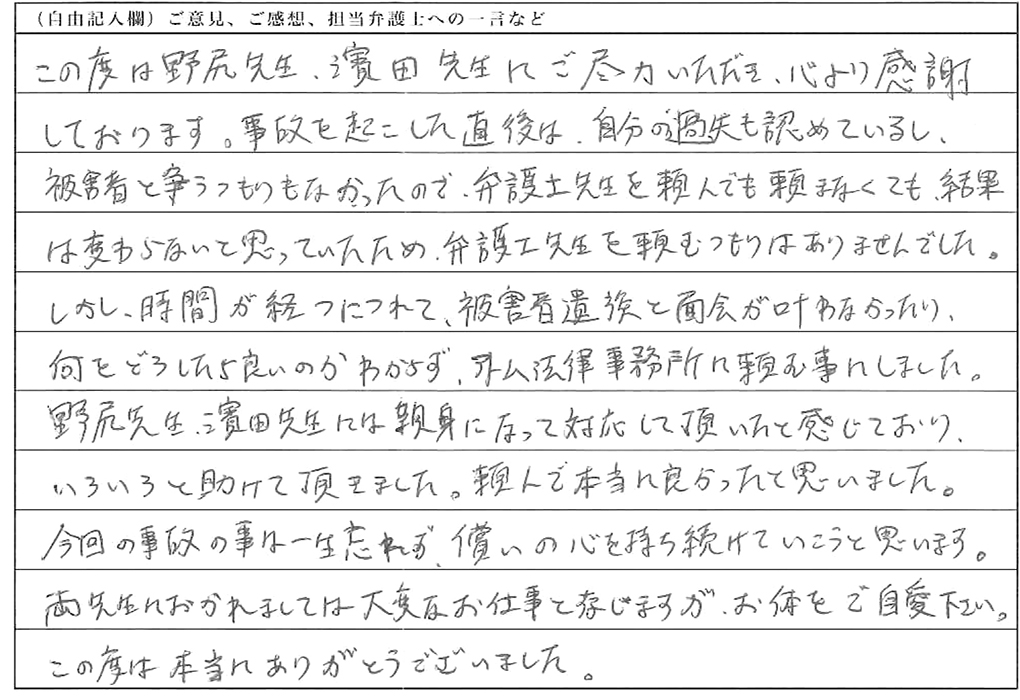 （自由記入欄）ご意見、ご感想、担当弁護士への一言など
この度は野尻先生、濱田先生にご尽力いただき、心より感謝
しております。事故を起こした直後は、自分の過失も認めているし、
被害者と争うつもりもなかったので、弁護士先生を頼んでも頼まなくても、結果
は変わらないと思っていたため、弁護士先生を頼むつもりはありませんでした。
しかし、時間が経つにつれて、被害者遺族と面会が叶わなかったり、
何をどうしたら良いのかわからず、アトム法律事務所に頼む事にしました。
野尻先生、濱田先生には親身になって対応して頂いたと感じており、
いろいろと助けて頂きました。頼んで本当に良かったと思いました。
今回の事故の事は一生忘れず、償いの心を持ち続けていこうと思います。
両先生におかれましては大変なお仕事と存じますが、お体をご自愛下さい。
この度は本当にありがとうございました。